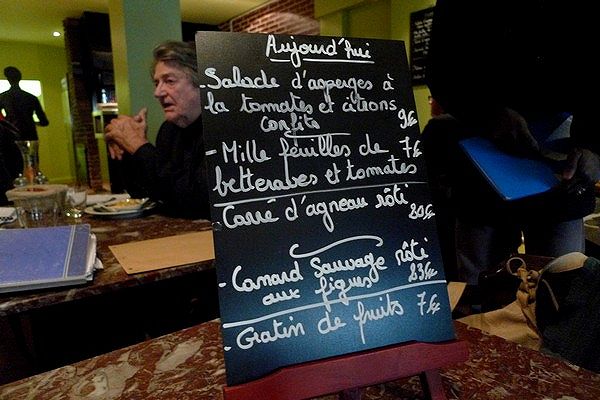 Aujourd'hui
- Salade d'asperges à
la tomates et citrons
confits 9€
- Mille feuilles de 7€
betteraves et tomates
Carré d'agneau rôti
20€
- Canard Sauvage rôti
aux figues 23€
- Gratin de fruits 7€